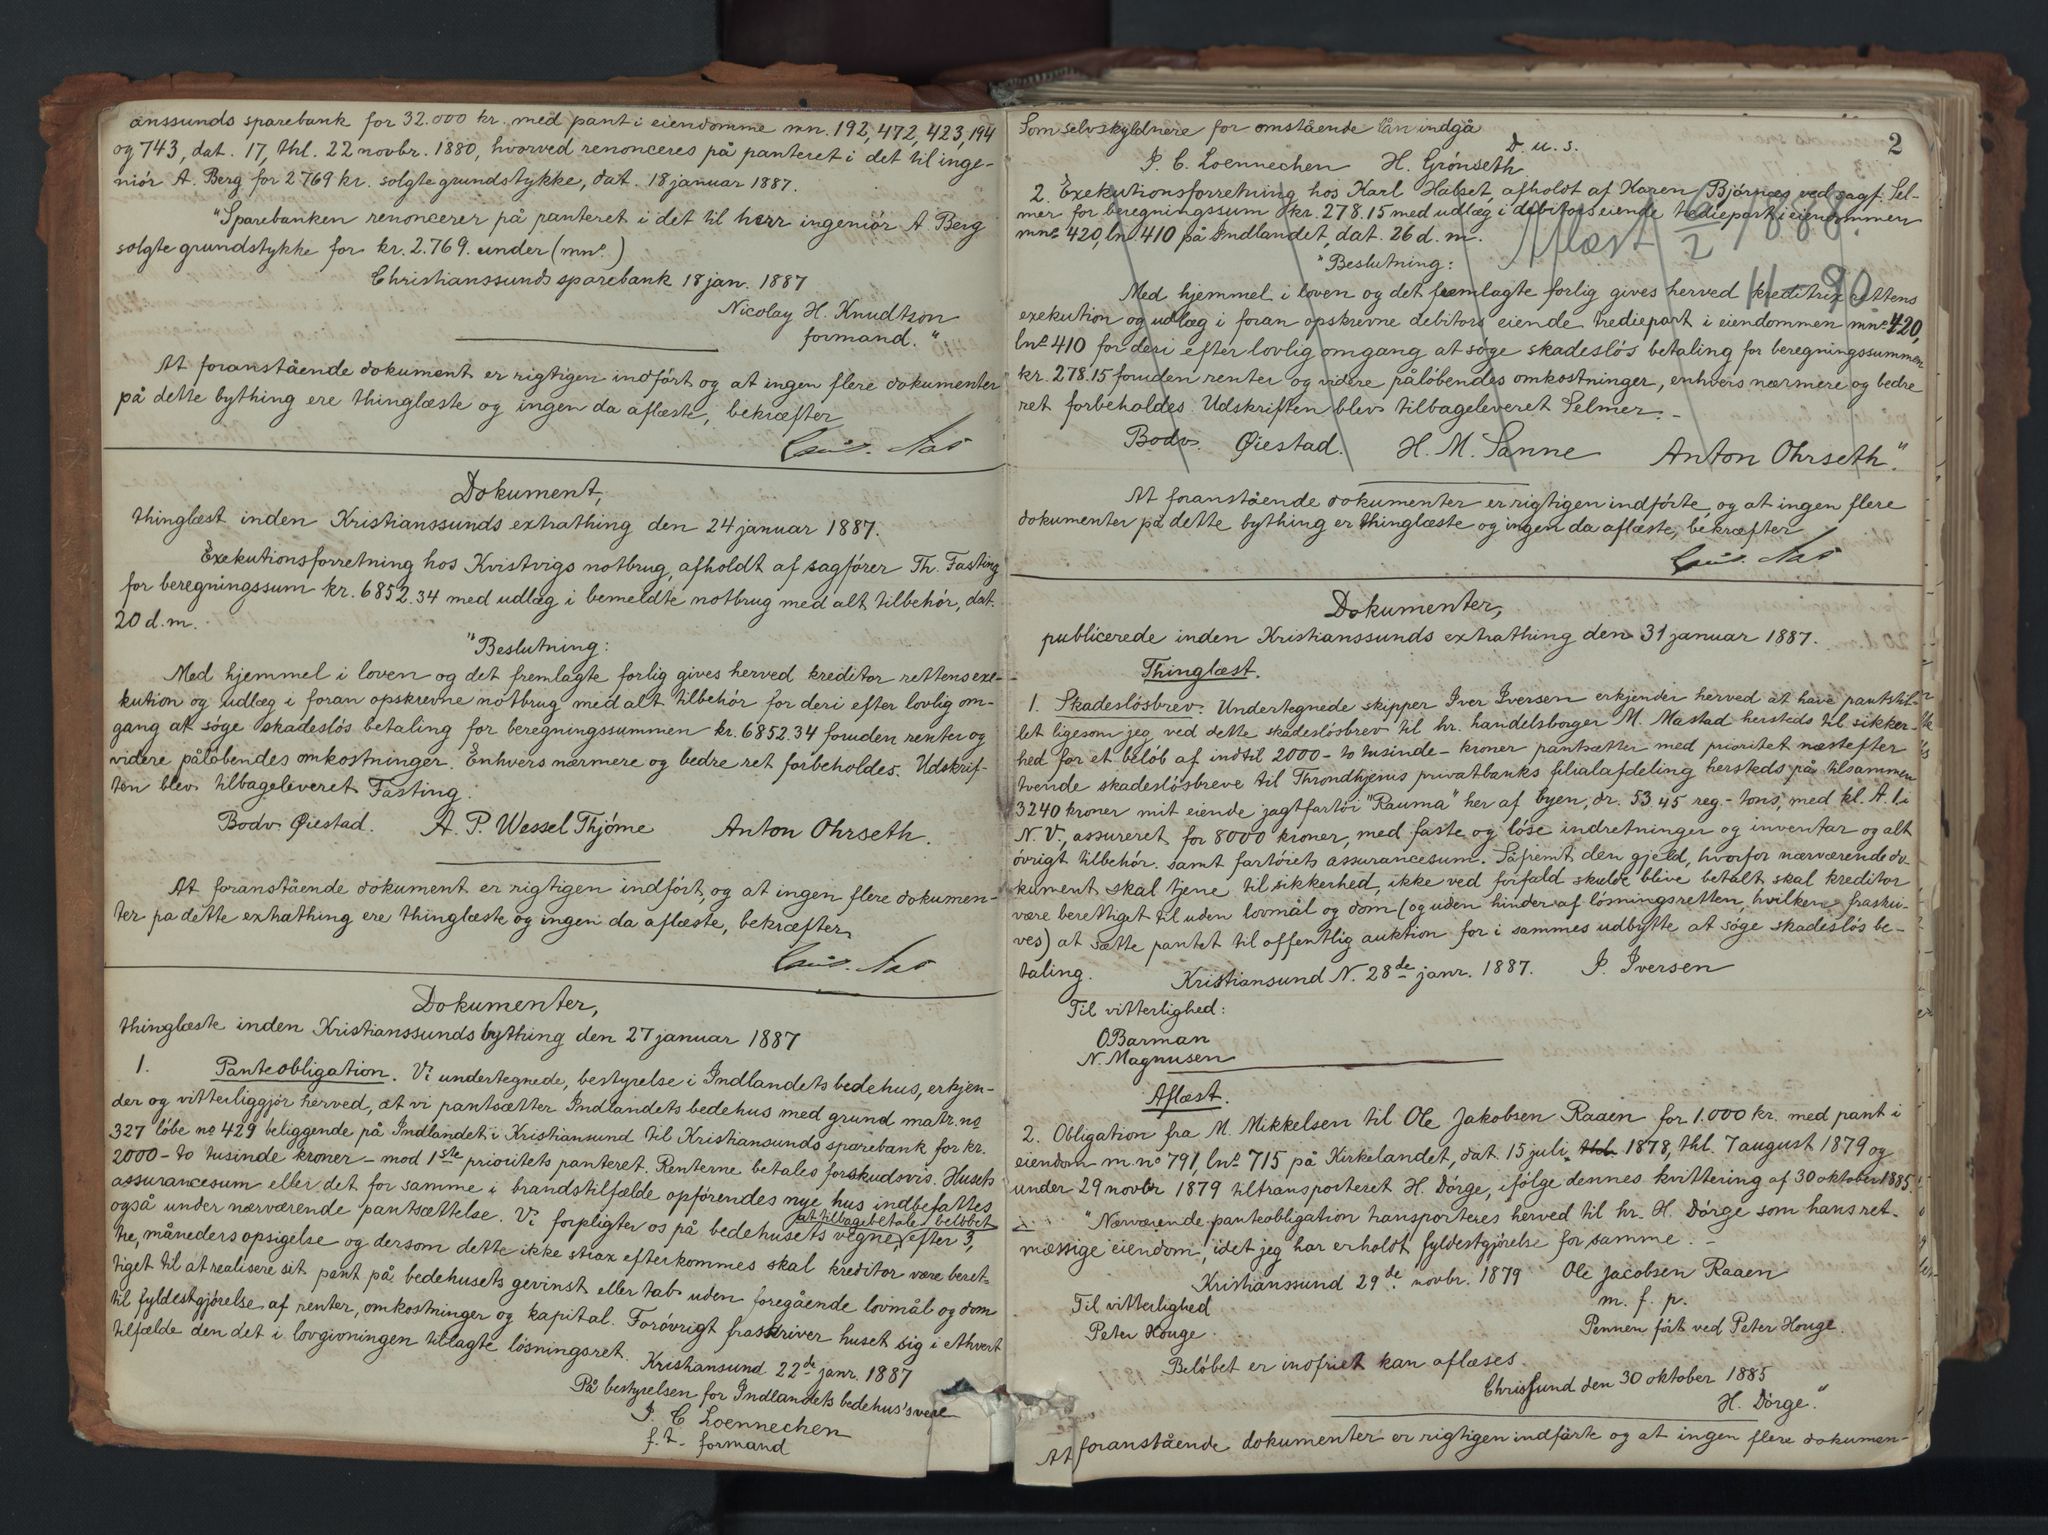 anssunds sparebank for 32.000 kr. med pant i eiendomme mn. 192, 472, 423, 194
og 743, dat. 17, thl. 22 novbr. 1880, hvorved renonceres på panteret i det til inge-
niör A. Berg for 2769 kr. solgte grundstykke, dat. 18 januar 1887.
"Sparebanken renoncerer på panteret i det til herr ingeniör A Berg
solgte grundstykke for kr. 2.769. under (mno.)
Christianssunds sparebank 18 jan. 1887
Nicolay H. Knudtson
formand."
At foranstående dokument er rigtigen indfört og at ingen flere dokumenter
på dette bything ere thinglæste og ingen da aflæste, bekræfter
Dokument,
thinglæst inden Kristianssunds extrathing den 24 januar 1887.
Exekutionsforretning hos Kvistvigs notbrug, afholdt af sagförer Th. Fasting
for beregningssum kr. 6852.34 med udlæg i bemeldte notbrug med alt tilbehör, dat.
20 d.m.
"Beslutning:
Med hjemmel i loven og det fremlagte forlig gives herved kreditor rettens exe-
kution og udlæg i foran opskrevne notbrug med alt tilbehör for deri efter lovlig om-
gang at söge skadeslös betaling for beregningssummen kr. 6852.34 foruden renter og
videre pålöbendes omkostninger. Enhvers nærmere og bedre ret forbeholdes. Udskrif-
ten blev tilbageleveret Fasting.
Bodv. Øiestad. A. P. Wessel Thjöme Anton Ohrseth.
At foranstående dokument er rigtigen indfört, og at ingen flere dokumen-
ter pa dette extrathing ere thinglæste og ingen da aflæste, bekræfter
Dokumenter,
thinglæste inden Kristianssunds bything den 27 januar 1887
1. Panteobligation. Vi undertegnede, bestyrelse i Indlandets bedehus, erkjen-
der og vitterliggjör herved, at vi pantsætter Indlandets bedehus med grund matr. no
327 löbe no 429 beliggende på Indlandet i Kristiansund til Kristiansunds sparebank for kr.
2000 - to tusinde kroner - mod 1ste prioritets panteret. Renterne betales forskudsvis. Husets
assurancesum eller det for samme i brandstilfælde opförendes nye hus indbefattes
også under nærværende pantsættelse. Vi forpligter os på bedehusets vegne at tilbagebetale belöbet efter 3,
tre, måneders opsigelse og dersom dette ikke strax efterkommes skal kreditor være beret-
tiget til at realisere sit pant på bedehusets gevinst eller tab uden foregående lovmål og dom
til fyldestgjörelse af renter, omkostninger og kapital. Forövrigt fraskriver huset sig i ethvert
tilfælde den det i lovgivningen tillagte lösningsret.
Kristiansund 22de janr. 1887
På bestyrelsen for Indlandets bedehus's vegne
P. C Loennechen
f. t. formand
2
Som selvskyldnere for omstående lån indgå
D. u. s.
P. C. Loennechen H. Grönseth
2. Exekutionsforretning hos Karl Halset, afholdt af Karen Björnæs ved sagf. Sel-
mer for beregningssum kr. 278.15 med udlæg i debitors eiende trediepart i eiendommen
mno 420, lno 410 på Indlandet, dat. 26 d. m.
Aflæst 6/2 1888.
"Beslutning:
11-90
Med hjemmel i loven og det fremlagte forlig gives herved kreditrix rettens
exekution og udlæg i foran opskrevne debitors eiende trediepart i eiendommen mno 420,
lno 410 for deri efter lovlig omgang at söge skadeslös betaling for beregningssummen
kr. 278.15 foruden renter og videre pålöbendes omkostninger, enhvers nærmere og bedre
ret forbeholdes. Udskriften blev tilbageleveret Selmer. -
Bodv. Øiestad. H. M. Sanne Anton Ohrseth."
At foranstående dokumenter er rigtigen indförte, og at ingen flere
dokumenter på dette bything er thinglæste og ingen da aflæste, bekræfter
Dokumenter,
publicerede inden Kristianssunds extrathing den 31 januar 1887.
Thinglæst.
1. Skadeslösbrev. Undertegnede skipper Iver Iversen erkjender herved at have pantstil-
let ligesom jeg ved dette skadeslösbrev til hr. handelsborger M. Mastad hersteds til sikker-
hed for et belöb af indtil 2000 - to tusinde - kroner pantsætter med prioritet næstefter
tvende skadeslösbreve til Throndhjems privatbanks filialafdeling hersteds på tilsammen
3240 kroner mit eiende jagtfartöi "Rauma" her af byen, dr. 53.45 reg.-tons, med kl. A. I. i
N. V., assureret for 8000 kroner, med faste og löse indretninger og inventar og alt
övrigt tilbehör. samt fartöiets assurancesum. Såfremt den gjeld, hvorfor nærværende do-
kument skal tjene til sikkerhed, ikke ved forfald skulde blive betalt skal kreditor
være berettiget til uden lovmål og dom (og uden hinder af lösningsretten, hvilken fraskri-
ves) at sætte pantet til offentlig auktion for i sammes udbytte at söge skadeslös be-
taling.
Kristiansund N. 28de janr. 1887. I. Iversen
Til vitterlighed:
O Barman
N. Magnusen
Aflæst.
2. Obligation fra M. Mikkelsen til Ole Jakobsen Raaen for 1.000 kr. med pant i
eiendom m. no 791, lno 715 på Kirkelandet, dat. 15 juli, thl. 1878, thl. 7 august 1879 og
under 29 novbr 1879 tiltransporteret H. Dörge, ifölge dennes kvittering af 30 oktober 1885.
"Nærværende panteobligation transporteres herved til hr. H. Dörge som hans ret-
mæssige eiendom, idet jeg har erholdt fyldestgjörelse for samme. -
Kristianssund 29de novbr. 1879 Ole Jacobsen Raaen
m. f. p.
Til vitterlighed
Peter Houge. Pennen fört ved Peter Houge.
Belöbet er indfriet kan aflæses.
Chrissund den 30 oktober 1885
H. Dörge."
At foranstående dokumenter er rigtigen indförte og at ingen flere dokumen-